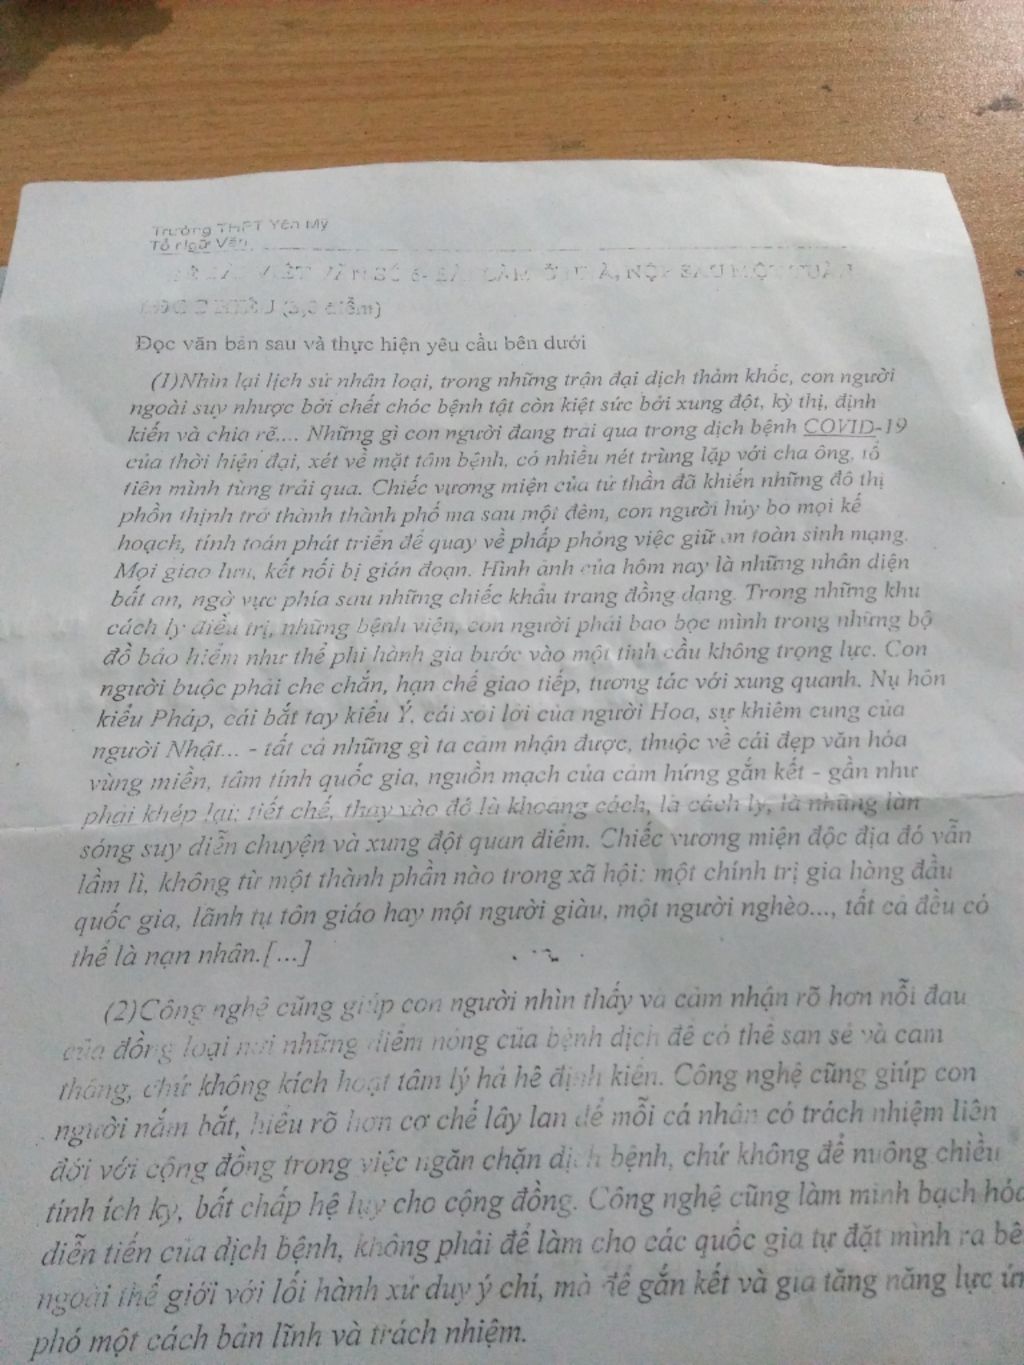 Trường THPT Yên Mỹ
Tổ ngữ Văn
VIẾT VĂN SỐ 6- BÀI LÀM Ở NHÀ, NỘP SAU MỘT TUẦN
ĐỌC HIỂU (3,0 điểm)
Đọc văn bản sau và thực hiện yêu cầu bên dưới
(1)Nhìn lại lịch sử nhân loại, trong những trận đại dịch thảm khốc, con người
ngoài suy nhược bởi chết chóc bệnh tật còn kiệt sức bởi xung đột, kỳ thị, định
kiến và chia rẽ.... Những gì con người đang trải qua trong dịch bệnh COVID-19
của thời hiện đại, xét về mặt tâm bệnh, có nhiều nét trùng lặp với cha ông, tổ
tiên mình từng trải qua. Chiếc vương miện của tử thần đã khiến những đô thị
phồn thịnh trở thành thành phố ma sau một đêm, con người hủy bỏ mọi kế
hoạch, tính toán phát triển để quay về phấp phỏng việc giữ an toàn sinh mạng.
Mọi giao lưu, kết nối bị gián đoạn. Hình ảnh của hôm nay là những nhân diện
bất an, ngờ vực phía sau những chiếc khẩu trang đồng dạng. Trong những khu
cách ly điều trị, những bệnh viện, con người phải bao bọc mình trong những bộ
đồ bảo hiểm như thể phi hành gia bước vào một tinh cầu không trọng lực. Con
người buộc phải che chắn, hạn chế giao tiếp, tương tác với xung quanh. Nụ hôn
kiểu Pháp, cái bắt tay kiểu Ý, cái xởi lởi của người Hoa, sự khiêm cung của
người Nhật... - tất cả những gì ta cảm nhận được, thuộc về cái đẹp văn hóa
vùng miền, tâm tính quốc gia, nguồn mạch của cảm hứng gắn kết - gần như
phải khép lại; tiết chế, thay vào đó là khoảng cách, là cách ly, là những làn
sóng suy diễn chuyện và xung đột quan điểm. Chiếc vương miện độc địa đó vẫn
lầm lì, không từ một thành phần nào trong xã hội: một chính trị gia hàng đầu
quốc gia, lãnh tụ tôn giáo hay một người giàu, một người nghèo..., tất cả đều có
thể là nạn nhân.[...]
(2)Công nghệ cũng giúp con người nhìn thấy và cảm nhận rõ hơn nỗi đau
của đồng loại nơi những điểm nóng của bệnh dịch để có thể san sẻ và cảm
thông, chứ không kích hoạt tâm lý hả hê định kiến. Công nghệ cũng giúp con
người nắm bắt, hiểu rõ hơn cơ chế lây lan để mỗi cá nhân có trách nhiệm liên
đới với cộng đồng trong việc ngăn chặn dịch bệnh, chứ không để nuông chiều
tính ích kỷ, bất chấp hệ lụy cho cộng đồng. Công nghệ cũng làm minh bạch hóa
diễn tiến của dịch bệnh, không phải để làm cho các quốc gia tự đặt mình ra bê
ngoài thế giới với lối hành xử duy ý chí, mà để gắn kết và gia tăng năng lực ứn
phó một cách bản lĩnh và trách nhiệm.